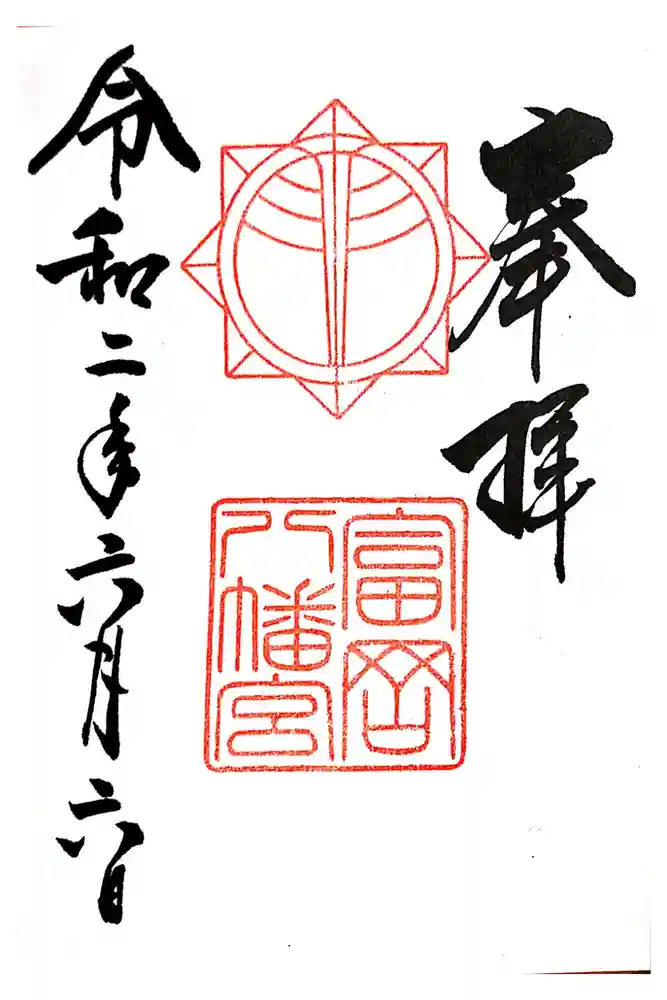 奉拝
富岡
八幡宮
令和二年六月六日